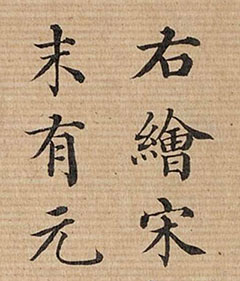 右繪宋
末有元